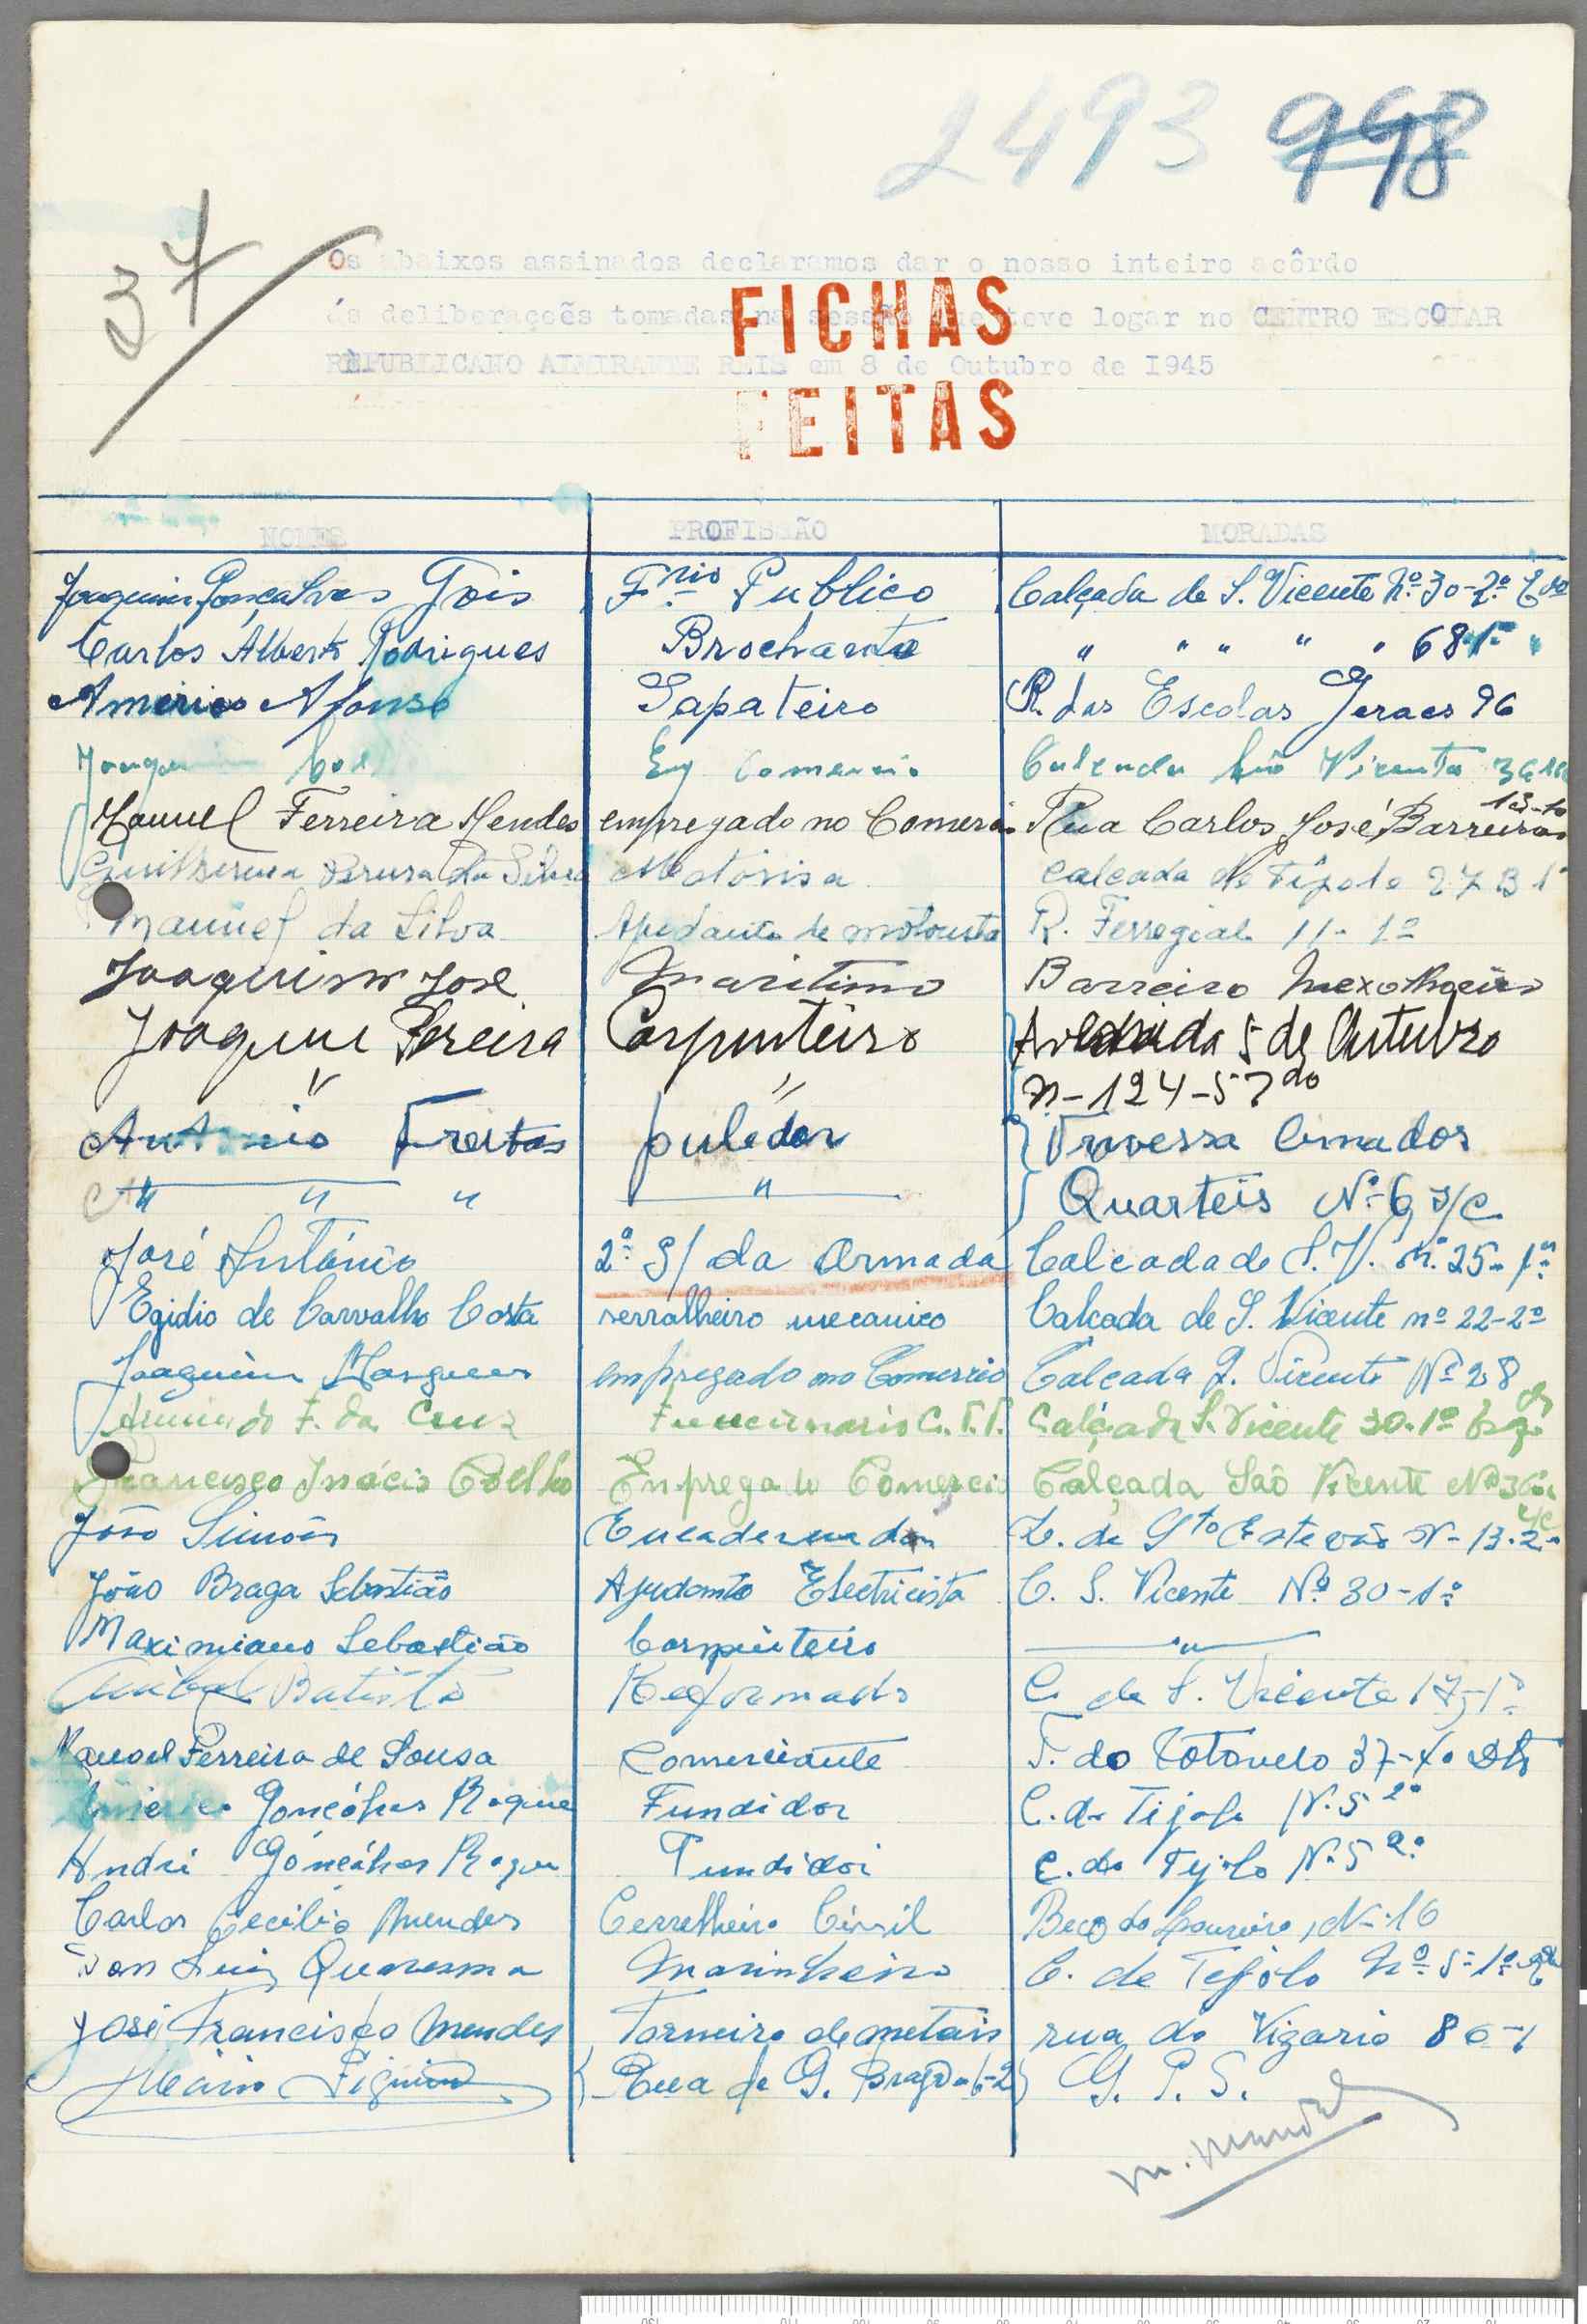 2493 998
37
Os abaixos assinados declaramos dar o nosso inteiro acôrdo
ás deliberaçoẽs tomadas na sessão que teve logar no CENTRO ESCOLAR
REPUBLICANO ALMIRANTE REIS em 8 de Outubro de I945
FICHAS
FEITAS
NOMES PROFISSÃO MORADAS
Joaquim Gonçalves Gois Fnio Publico Calçada de S. Vicente Nº 30-2º Edo
Carlos Alberto Rodrigues Brochante " " " " " 68 1º "
Americo Afonso Sapateiro R. das Escolas Geraes 96
Em Comercio Calçada São Vicente
Manuel Ferreira Mendes empregado no Comercio Rua Carlos José Barreiros 13-1º
Guilherme da Silva Motorisa Calçada do Tijolo 27 B 1º
Manuel da Silva Ajudante de motorista R. Ferregial 11-1º
Joaquim José Maritimo Barreiro Mexolhoeiro
Joaquim Pereira Carpinteiro Avenida 5 de Outubro
" " n-124-57do
António Freitas pulidor Travessa Cimador
" " " " Quarteis Nº 6 r/c
José António 2º S/ da Armada Calcada de S. V. Nº 25-1º
Egidio de Carvalho Costa serralheiro mecanico Calçada de S. Vicente nº 22-2º
Joaquim Marques empregado no Comercio Calcada S. Vicente Nº 28
Armando F. da Cruz Funcionario C.T.T. Calçada S. Vicente 30-1º Esq.
Francisco Inácio Coelho Empregado Comercio Calçada São Vicente Nº 36 r/c
João Simões Encadernador L. de Sto Estevão Nº 13-2º
João Braga Sebastião Ajudante Electricista C. S. Vicente Nº 30-1º
Maximiano Sebastião Carpinteiro "
Anibal Batista Reformado C. de S. Vicente 17-1º
Manoel Ferreira de Sousa Comerciante T. do Cotovelo 37-4º Dto
Americo Gonçalves Roque Fundidor C. do Tijolo Nº 5 2º
André Gonçalves Roque Fundidor C. do Tijolo Nº 5 2º
Carlos Cecilio Mendes Cerrelheiro Civil Beco do Loureiro, Nº 16
Luiz Quaresma Marinheiro C. de Tejolo Nº 5-1º
José Francisco Mendes Torneiro de metais rua do Vigario 80-1
Mário Rua de G. Braga 6-2 G. P. S.